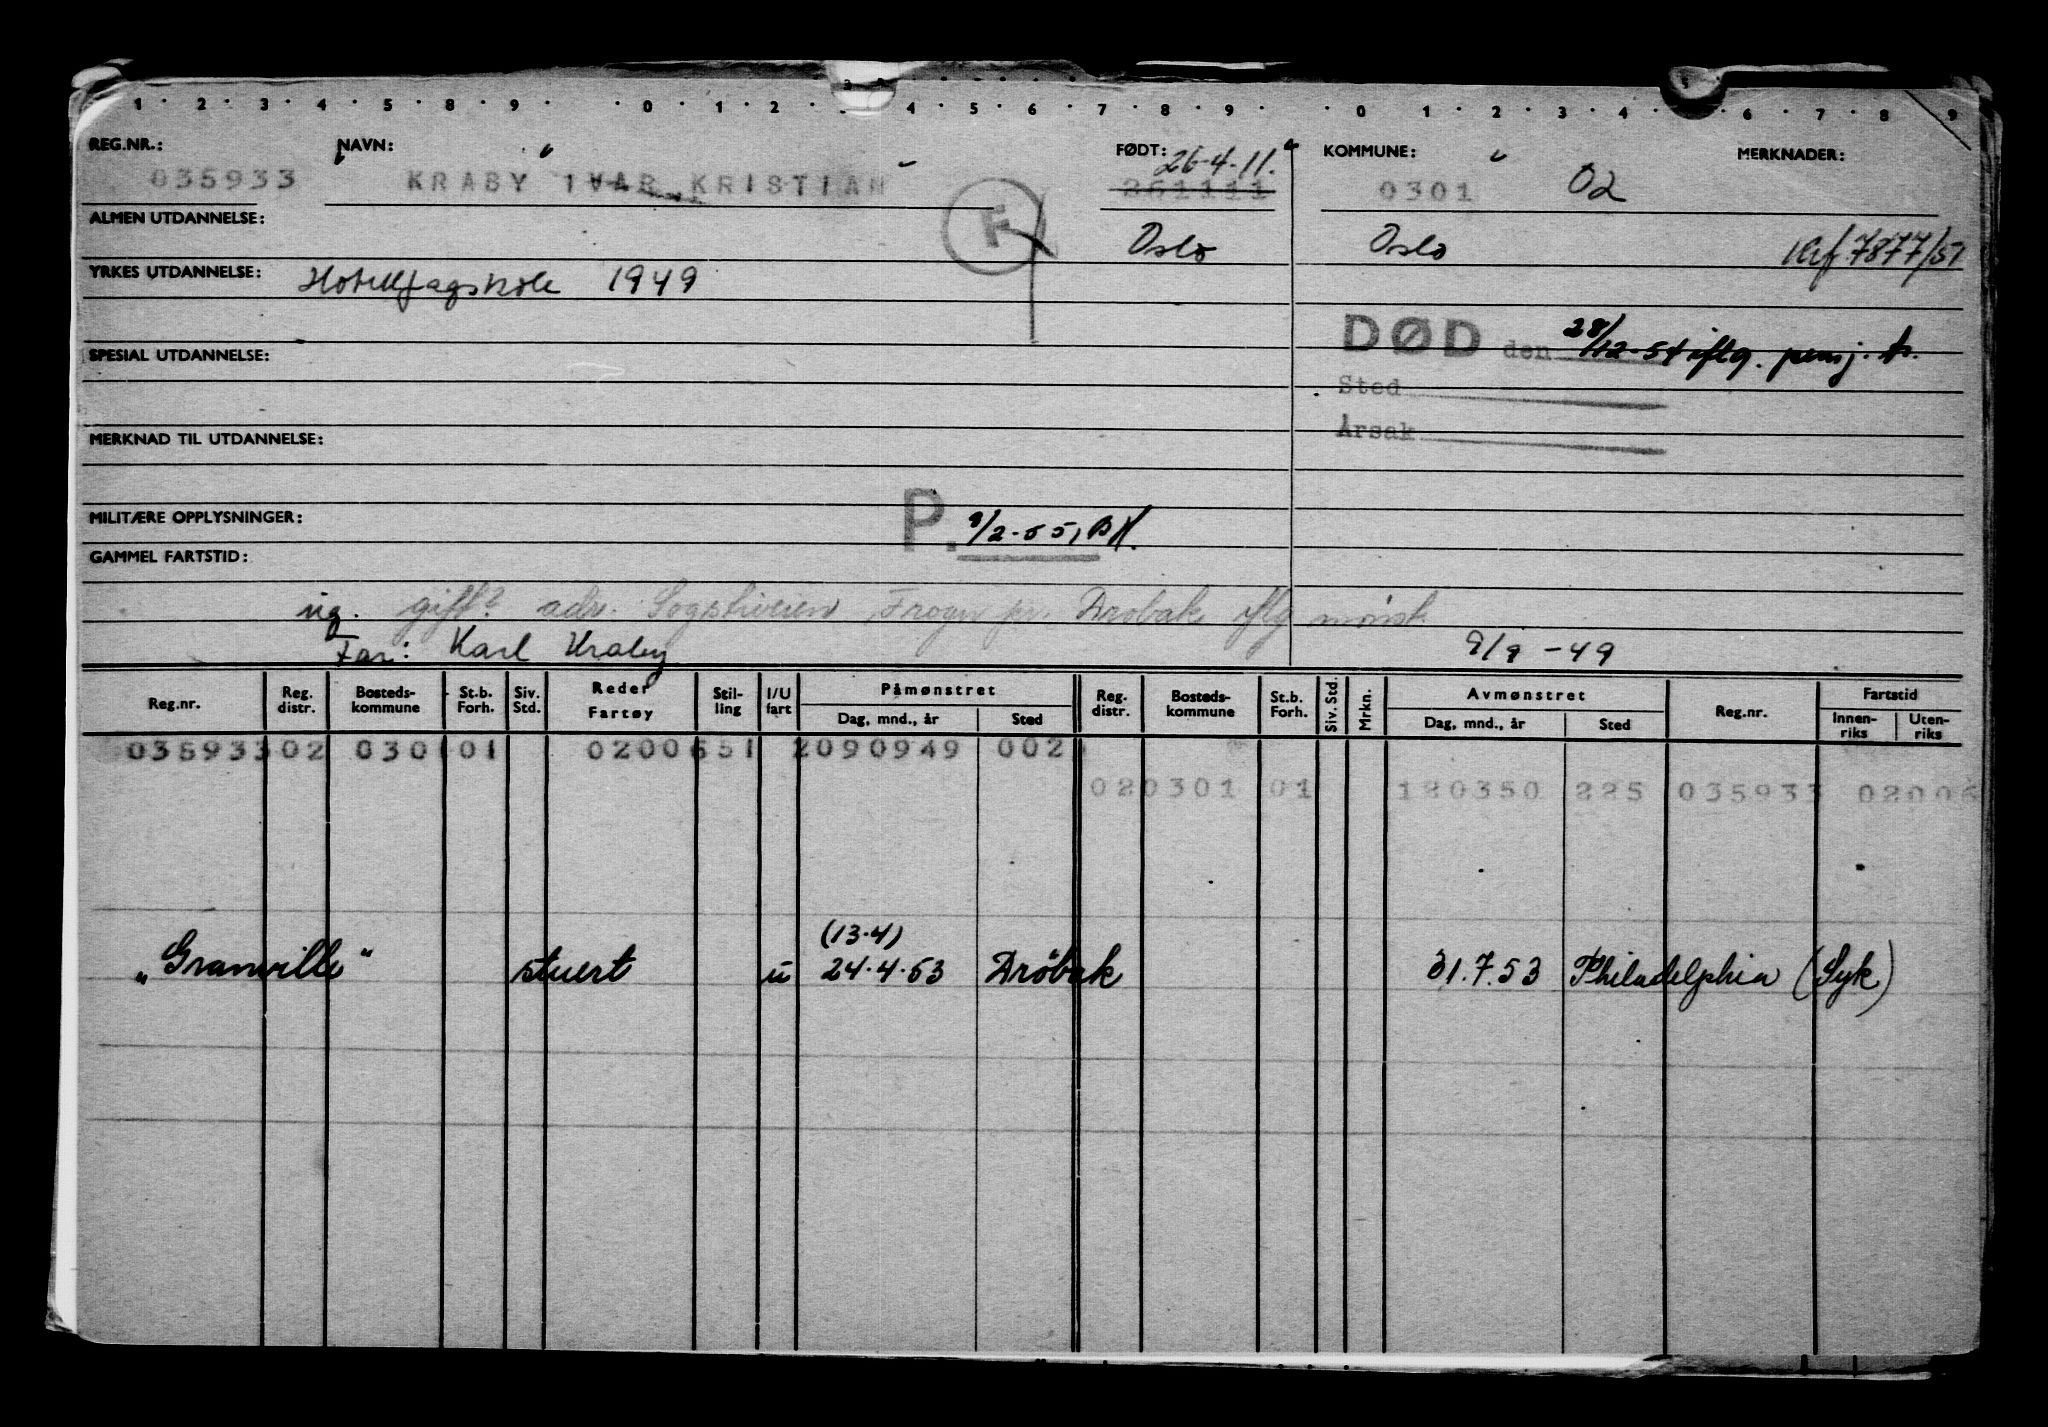 1 · 2 · 3 · 4 · 5 · 8 · 9 · 0 · 1 · 2 · 3 · 4 · 5 · 6 · 7 · 8 · 9 · 0 · 1 · 2 · 3 · 4 · 5 · 6 · 7 · 8 · 9
REG.NR.: NAVN: FØDT: 26-4-11. KOMMUNE: MERKNADER:
035933 KRABY IVAR KRISTIAN 261111 0301 02
ALMEN UTDANNELSE: F Oslo Oslo 7877/51
YRKES UTDANNELSE: Hotellfagskole 1949
DØD den 28/12-54 iflg. pensj. tr.
SPESIAL UTDANNELSE:
Sted
Årsak
MERKNAD TIL UTDANNELSE:
MILITÆRE OPPLYSNINGER: P. 9/2-55, BH.
GAMMEL FARTSTID:
ug. gift? adr. Frogn pr. Drøbak iflg mønst.
Far: Karl Kraby 9/9-49
Reg.nr. Reg. distr. Bosteds-kommune St.b. Forh. Siv. Std. Reder Fartøy Stil-ling I/U fart Påmønstret Dag, mnd., år Sted Reg. distr. Bosteds-kommune St.b. Forh. Siv. Std. Mrkn. Avmønstret Dag, mnd., år Sted Reg.nr. Fartstid Innen-riks Uten-riks
03593302 030101 0200651 2090949 002
020301 01 180350 225 035933 02006
(13.4)
"Granville" stuert u 24.4.53 Drøbak 31.7.53 Philadelphia (Syk)